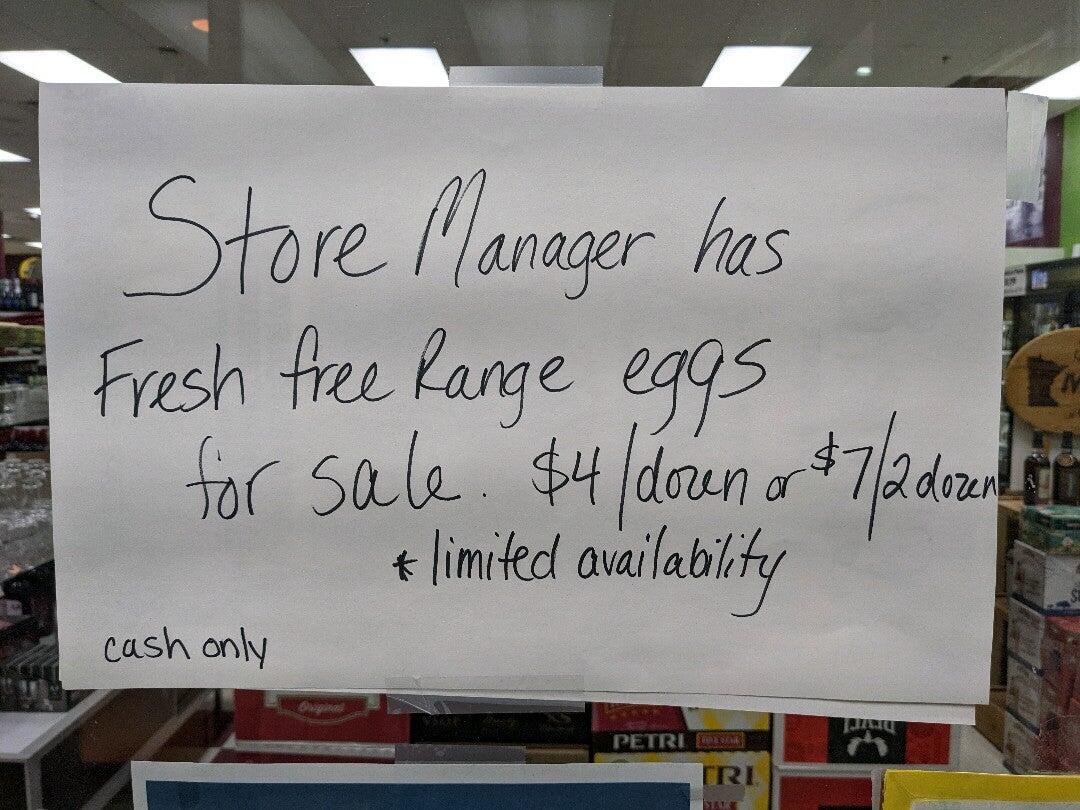 Store Manager has
Fresh free Range eggs
for sale. $4/dozen or $7/2 dozen
* limited availability
cash only
Original
PETRI